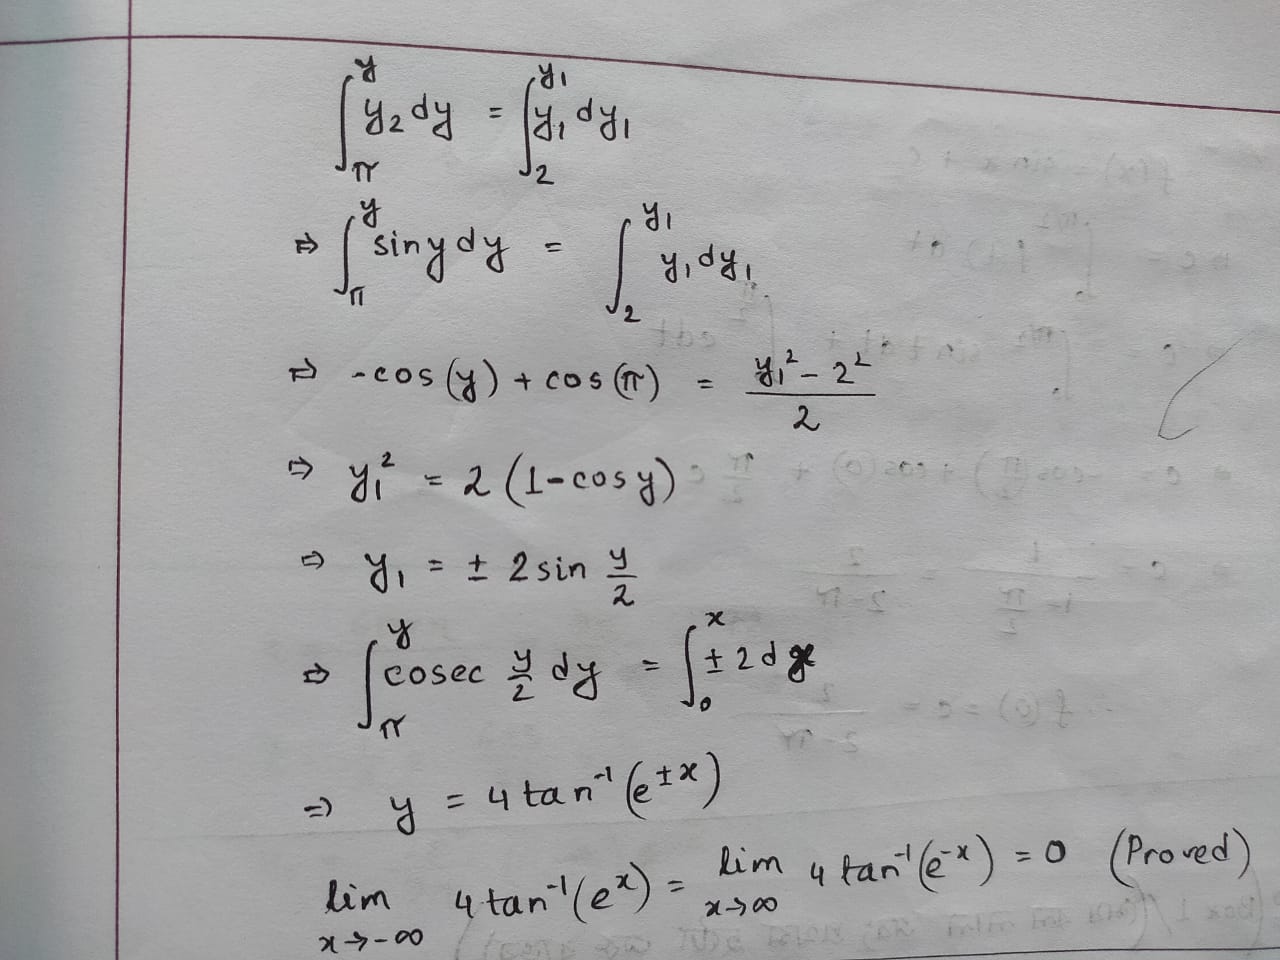 ∫_π^y y₂ dy = ∫_2^{y₁} y₁ dy₁
⇒ ∫_π^y sin y dy = ∫_2^{y₁} y₁ dy₁
⇒ -cos(y) + cos(π) = (y₁² - 2²)/2
⇒ y₁² = 2(1-cos y)
⇒ y₁ = ± 2 sin y/2
⇒ ∫_π^y cosec y/2 dy = ∫_0^x ± 2 dx
⇒ y = 4 tan⁻¹(e^{±x})
lim_{x→-∞} 4 tan⁻¹(e^x) = lim_{x→∞} 4 tan⁻¹(e^{-x}) = 0 (Proved)